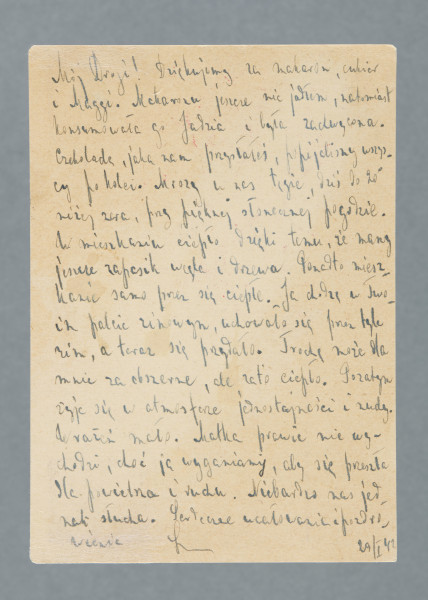 Mój Drogi! Dziękujemy za makaron, cukier
i Maggi. Makaronu jeszcze nie jadłem, natomiast
konsumowała go Jadzia i była zachwycona.
Czekoladę, jaką nam przysłałeś, popijaliśmy wszys-
cy po kolei. Mrozy u nas tęgie, dziś do 20°
niżej zera, przy pięknej słonecznej pogodzie.
W mieszkaniu ciepło dzięki temu, że mamy
jeszcze zapasik węgla i drzewa. Ponadto miesz-
kanie samo przez się ciepłe. Ja chodzę w Two-
im palcie zimowym, uchowało się przez tyle
zim, a teraz się przydało. Trochę może dla
mnie za obszerne, ale zato ciepło. Pozatym
żyje się w atmosferze jednostajności i nudy.
Wrażeń mało. Matka prawie nie wy-
chodzi, choć ją wyganiamy, aby się przeszła
dla powietrza i ruchu. Niebardzo nas jed-
nak słucha. Serdeczne ucałowania i pozdro-
wienia
29/I 42